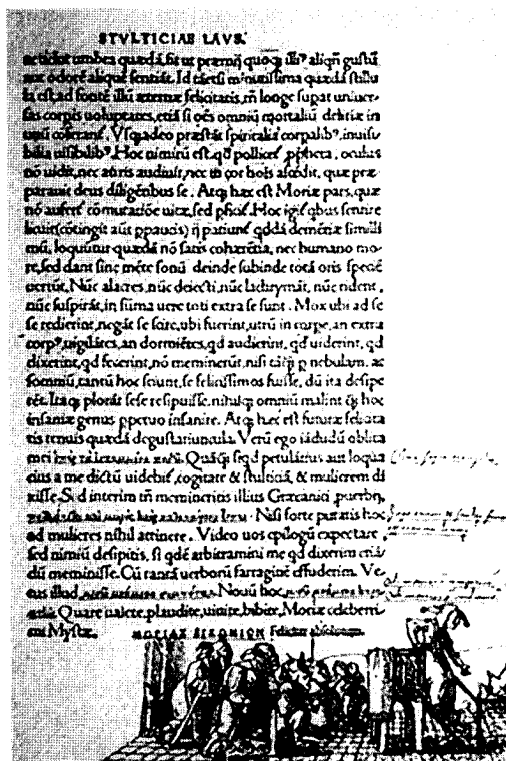 STVLTICIAE LAVS.
umbra quædã, fit ut præmij quoqȝ illiꝰ aliqñ gustũ
aut odorẽ aliquẽ sentiãt. Id tãetsi minutissima quædã stillu
la est, ad fontẽ illũ æternæ felicitatis, tñ longe supat univer-
sas corpis uoluptates, etiã si oẽs omniũ mortaliũ delitiæ in
unũ Vsqȝadeo præstãt spiritalia corpalibꝰ, inuisi
bilia uisibilibꝰ. Hoc nimirũ est, qđ pollicet, ppheta, oculus
nõ uidit, nec auris audiuit, nec in cor hois ascẽdit, quæ præ-
parauit deus diligẽtibus se. Atqȝ hæc est Moriæ pars, quæ
nõ aufert cõmutatiõe uitæ, sed pficit. Hoc igit qbus sentire
licuit (cõtingit aut ppaucis) ij patiunt qddã demẽtiæ simili
mũ, loquũtur quædã nõ satis cohærẽtia, nec humano mo-
re, sed dant sine mẽte sonũ deinde subinde totã oris speciẽ
uertũt. Nũc alacres, nũc deiecti, nũc lachrymãt, nũc rident,
nũc suspirãt, in sũma uere toti extra se sunt. Mox ubi ad se
se redierint, negãt se scire, ubi fuerint, utrũ in corpe, an extra
corpꝰ, uigilãtes, an dormiẽtes, qd audierint, qd uiderint, qd
dixerint, qd fecerint, nõ meminerũt, nisi tãqȝ p nebulam, ac
somniũ, tantũ hoc sciunt, se felicissimos fuisse, dũ ita desipe
rẽt. Itaqȝ plorãt sese resipuisse, nihilqȝ omniũ malint qȝ hoc
insaniæ genus ppetuo insanire. Atqȝ hæc est futuræ felicita
tis tenuis quædã degustatiuncula. Verũ ego iãdudũ oblita
mei Quãqȝ si qd petulãtius aut loqua
cius a me dictũ uidebit, cogitate & stulticiã, & mulierem di
xisse. Sed interim tñ memineritis illius Græcanici puerbij,
Nisi forte putatis hoc
ad mulieres nihil attinere. Video uos epilogũ expectare,
sed nimiũ desipitis, si qdẽ arbitramini me qd dixerim etiã
dũ meminisse. Cũ tantã uerborũ farraginẽ effuderim. Ve
tus illud, Nouũ hoc,
Quare ualete, plaudite, uiuite, bibite, Moriæ celeberri
mi Mystæ.